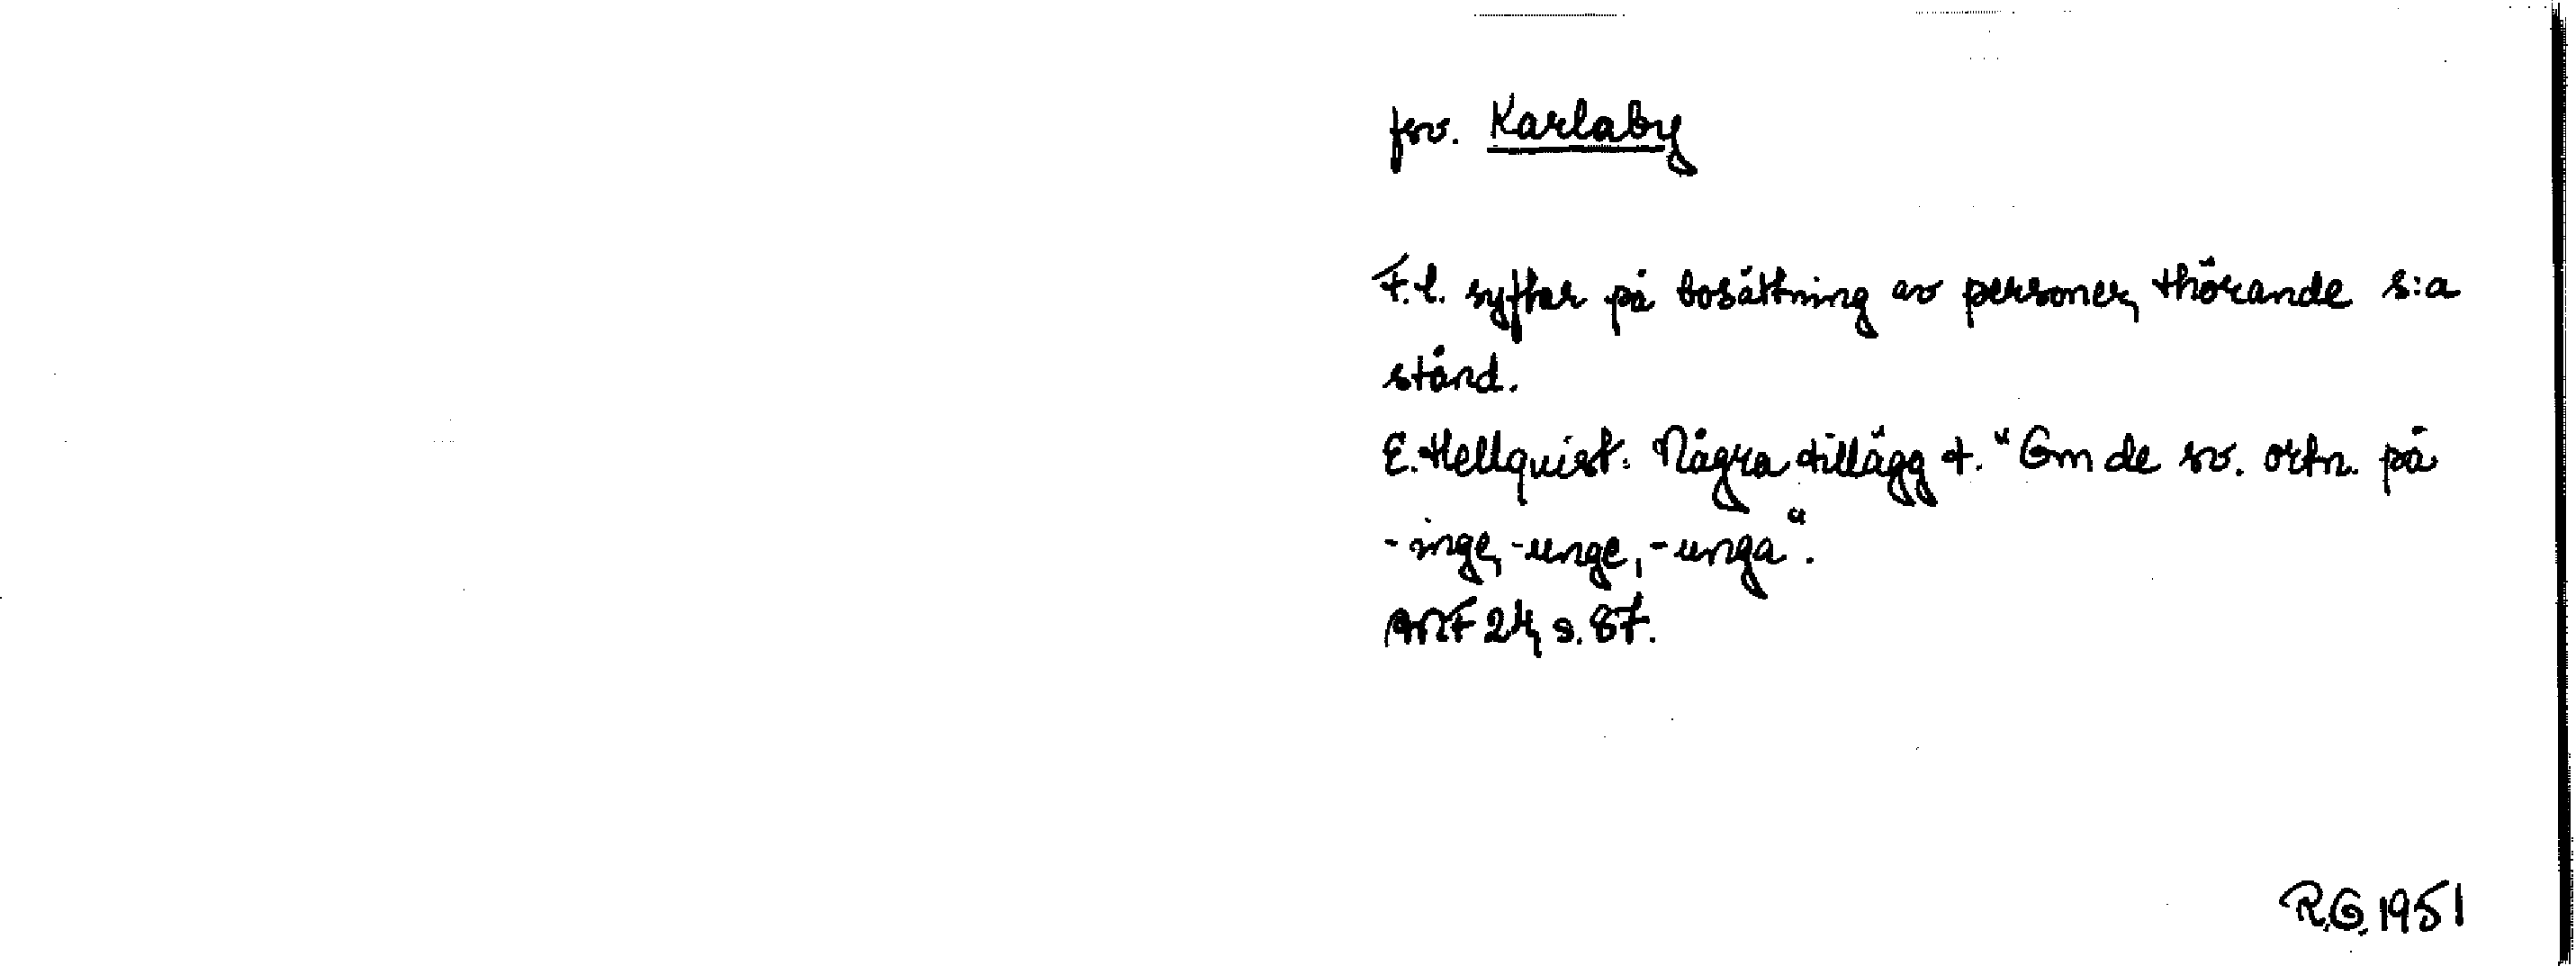 fsv. Karlaby
F.l. syftar på bosättning av personer, thörande s:a
stånd.
E. Hellquist: Några tillägg t. "Om de sv. ortn. på
-inge, -unge, -unga".
ANF 24, s. 87.
R.G. 1951